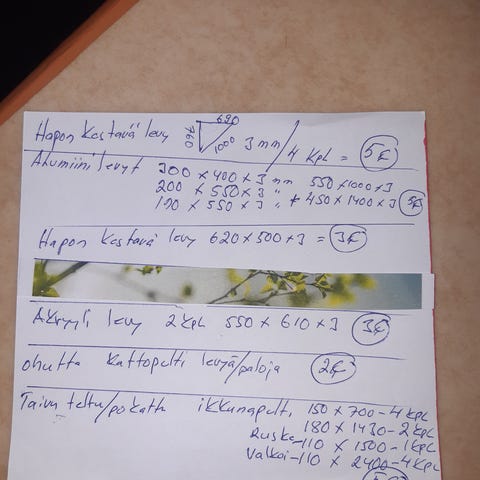 Hapon Kestävä levy 760 690 1000 3 mm / 4 Kpl = 5€
Alumiini levyt 300 x 400 x 3 mm 550x1000x3
200 x 550 x 3 " + 450 x 1400 x 3 5€
120 x 550 x 3 "
Hapon Kestävä levy 620 x 500 x 3 = 3€
Akryyli levy 2 kpl 550 x 610 x 3 3€
ohutta Kattopelti levyä/paloja 2€
Taivutettu/pokattu ikkunapelti, 150 x 700 - 4 Kpl
180 x 1430 - 2 Kpl
Ruske - 110 x 1500 - 1 Kpl
Valkoi - 110 x 2400 - 4 Kpl